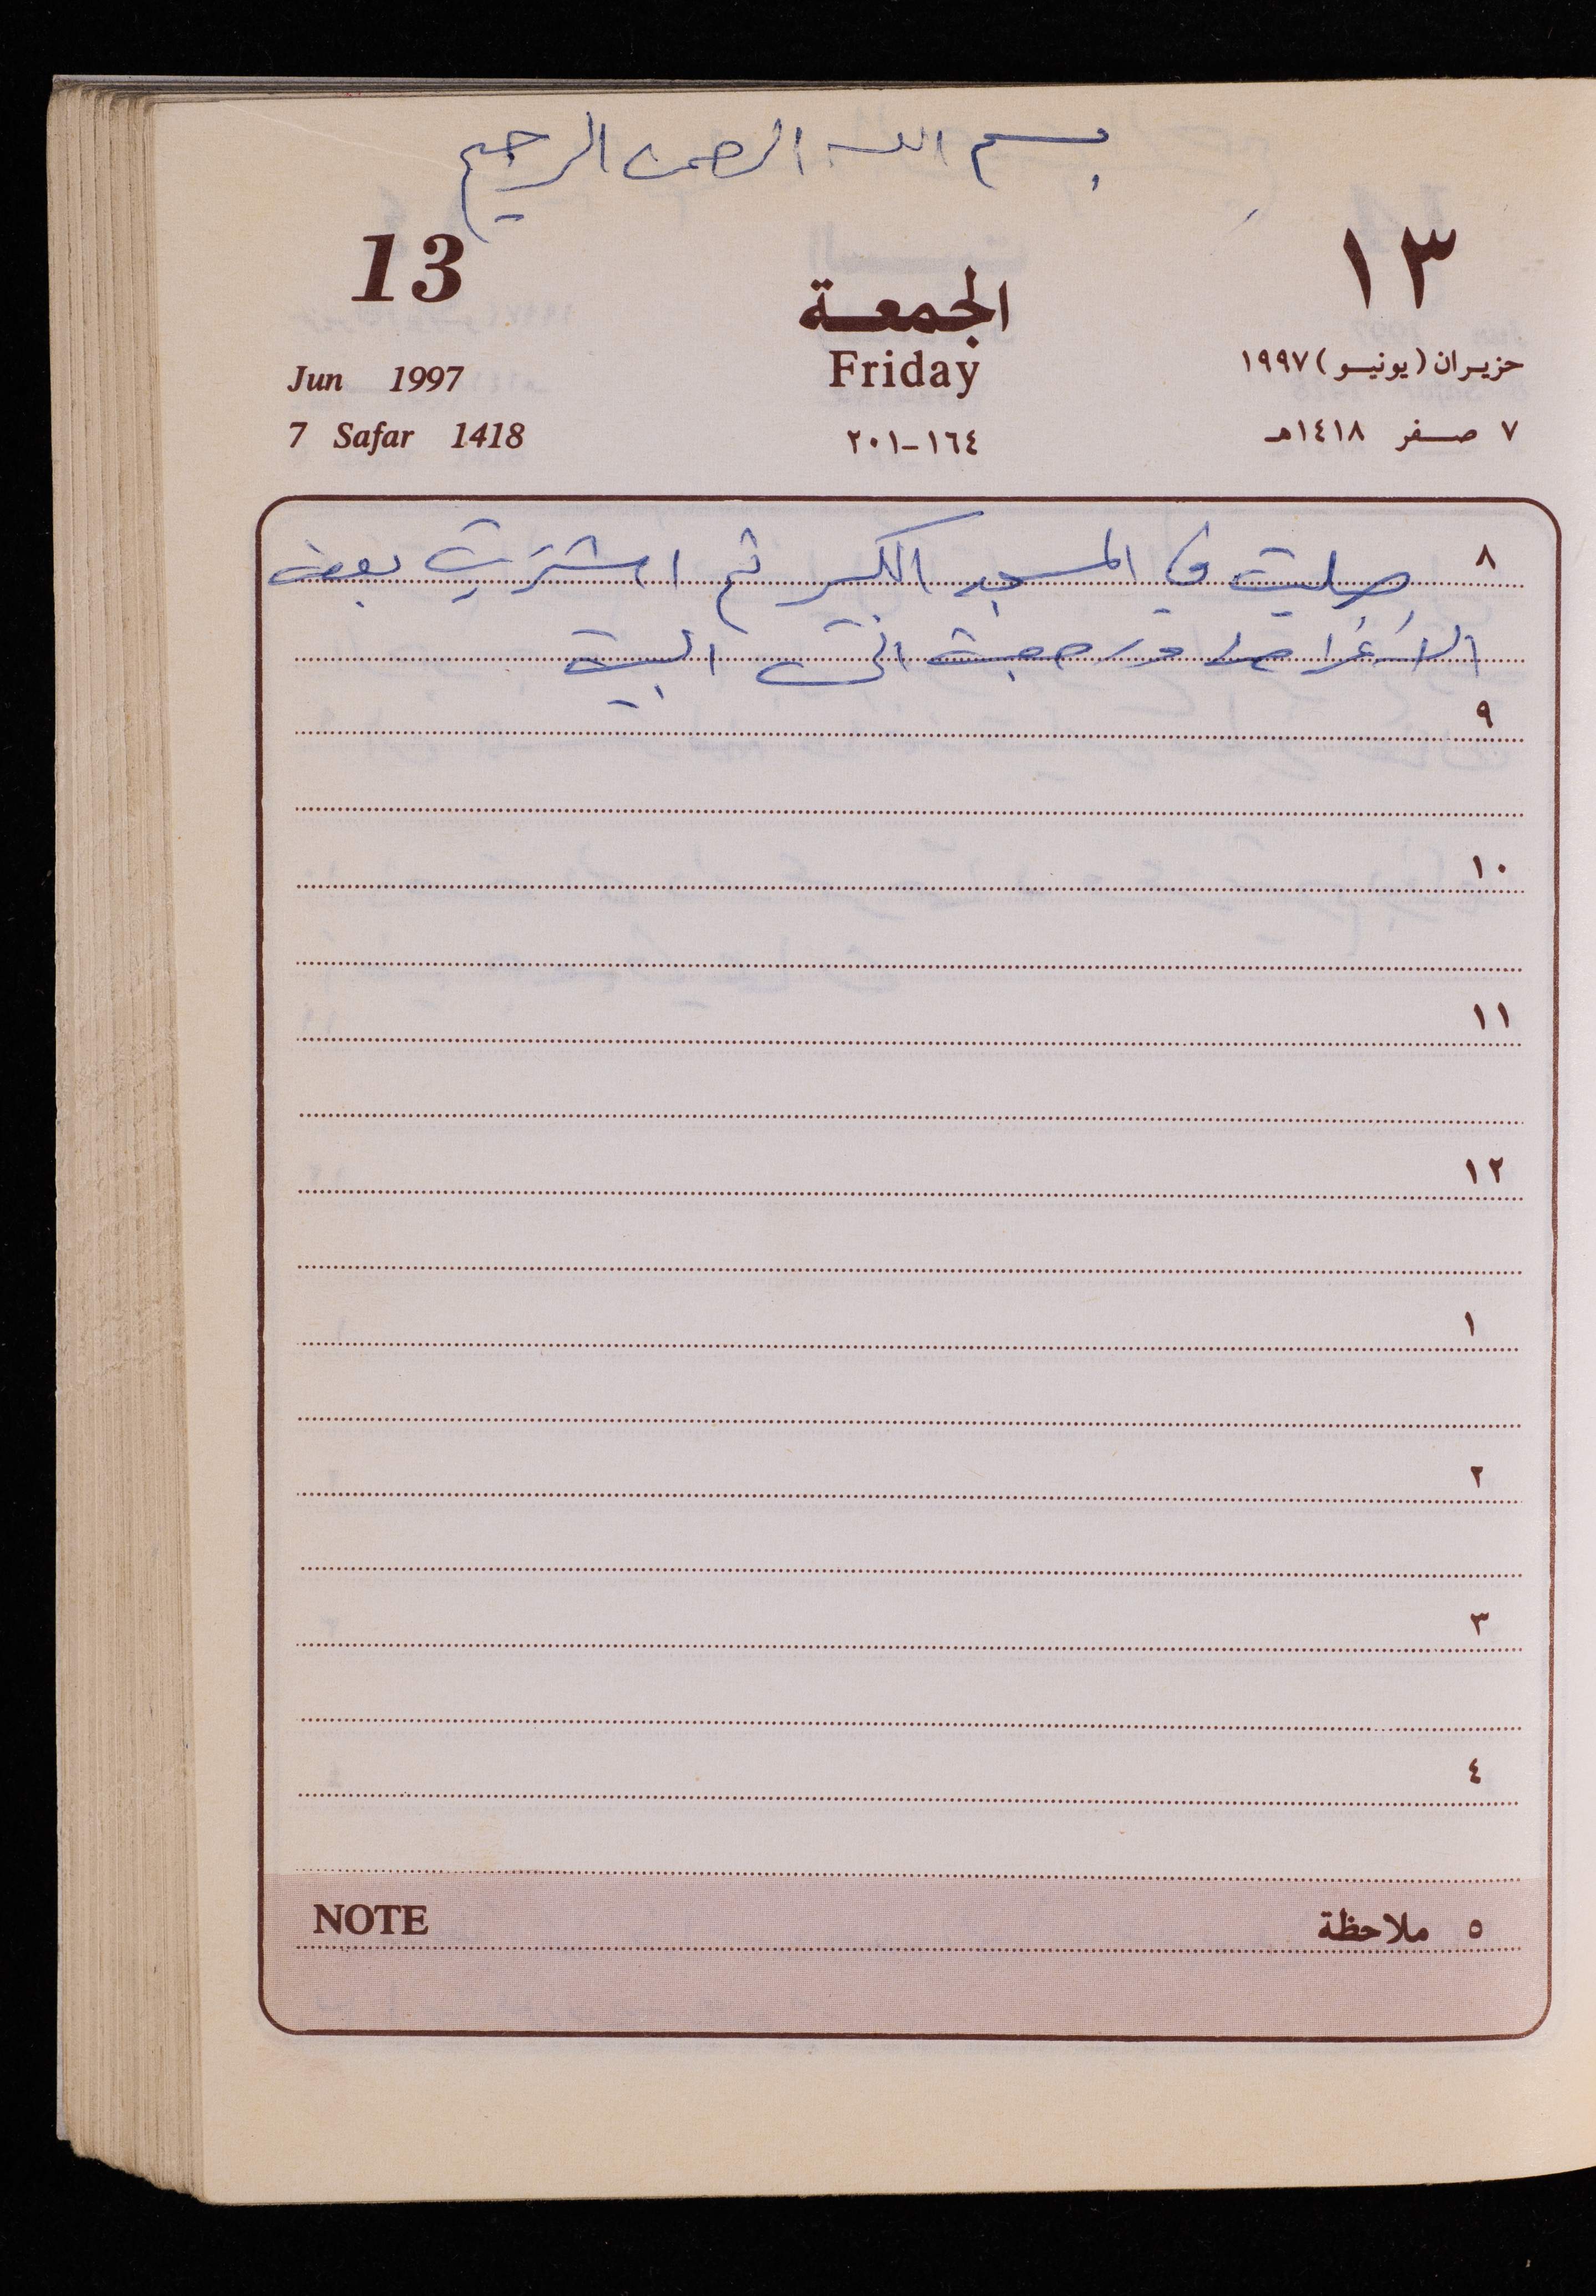 بسم الله الرحمن الرحيم
13 الجمعة ١٣
Jun 1997 Friday حزيران (يونيو) ١٩٩٧
7 Safar 1418 ١٦٤-٢٠١ ٧ صفر ١٤١٨هـ
٨ صليت في المسجد الكبير ثم اشتريت بعض
الاغراض ورجعت الى البيت
٩
١٠
١١
١٢
١
٢
٣
٤
NOTE ٥ ملاحظة